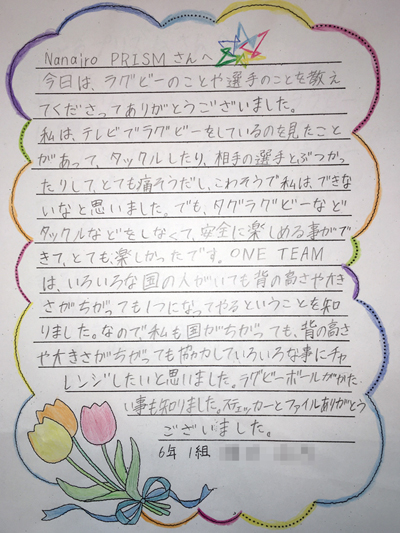 Nanairo PRISMさんへ
今日は、ラグビーのことや選手のことを教え
てくださってありがとうございました。
私は、テレビでラグビーをしているのを見たこと
があって、タックルしたり、相手の選手とぶつかっ
たりして、とても痛そうだし、こわそうで私は、できな
いなと思いました。でも、タグラグビーなど
タックルなどをしなくて、安全に楽しめる事がで
きて、とても楽しかったです。ONE TEAM
は、いろいろな国の人がいても背の高さや大き
さがちがっても1つになってやるということを知
りました。なので、私も国がちがっても、背の高さ
や大きさがちがっても協力していろいろな事にチャ
レンジしたいと思いました。ラグビーボールがかた
い事も知りました。ステッカーとファイルありがとう
ございました。
6年 1組